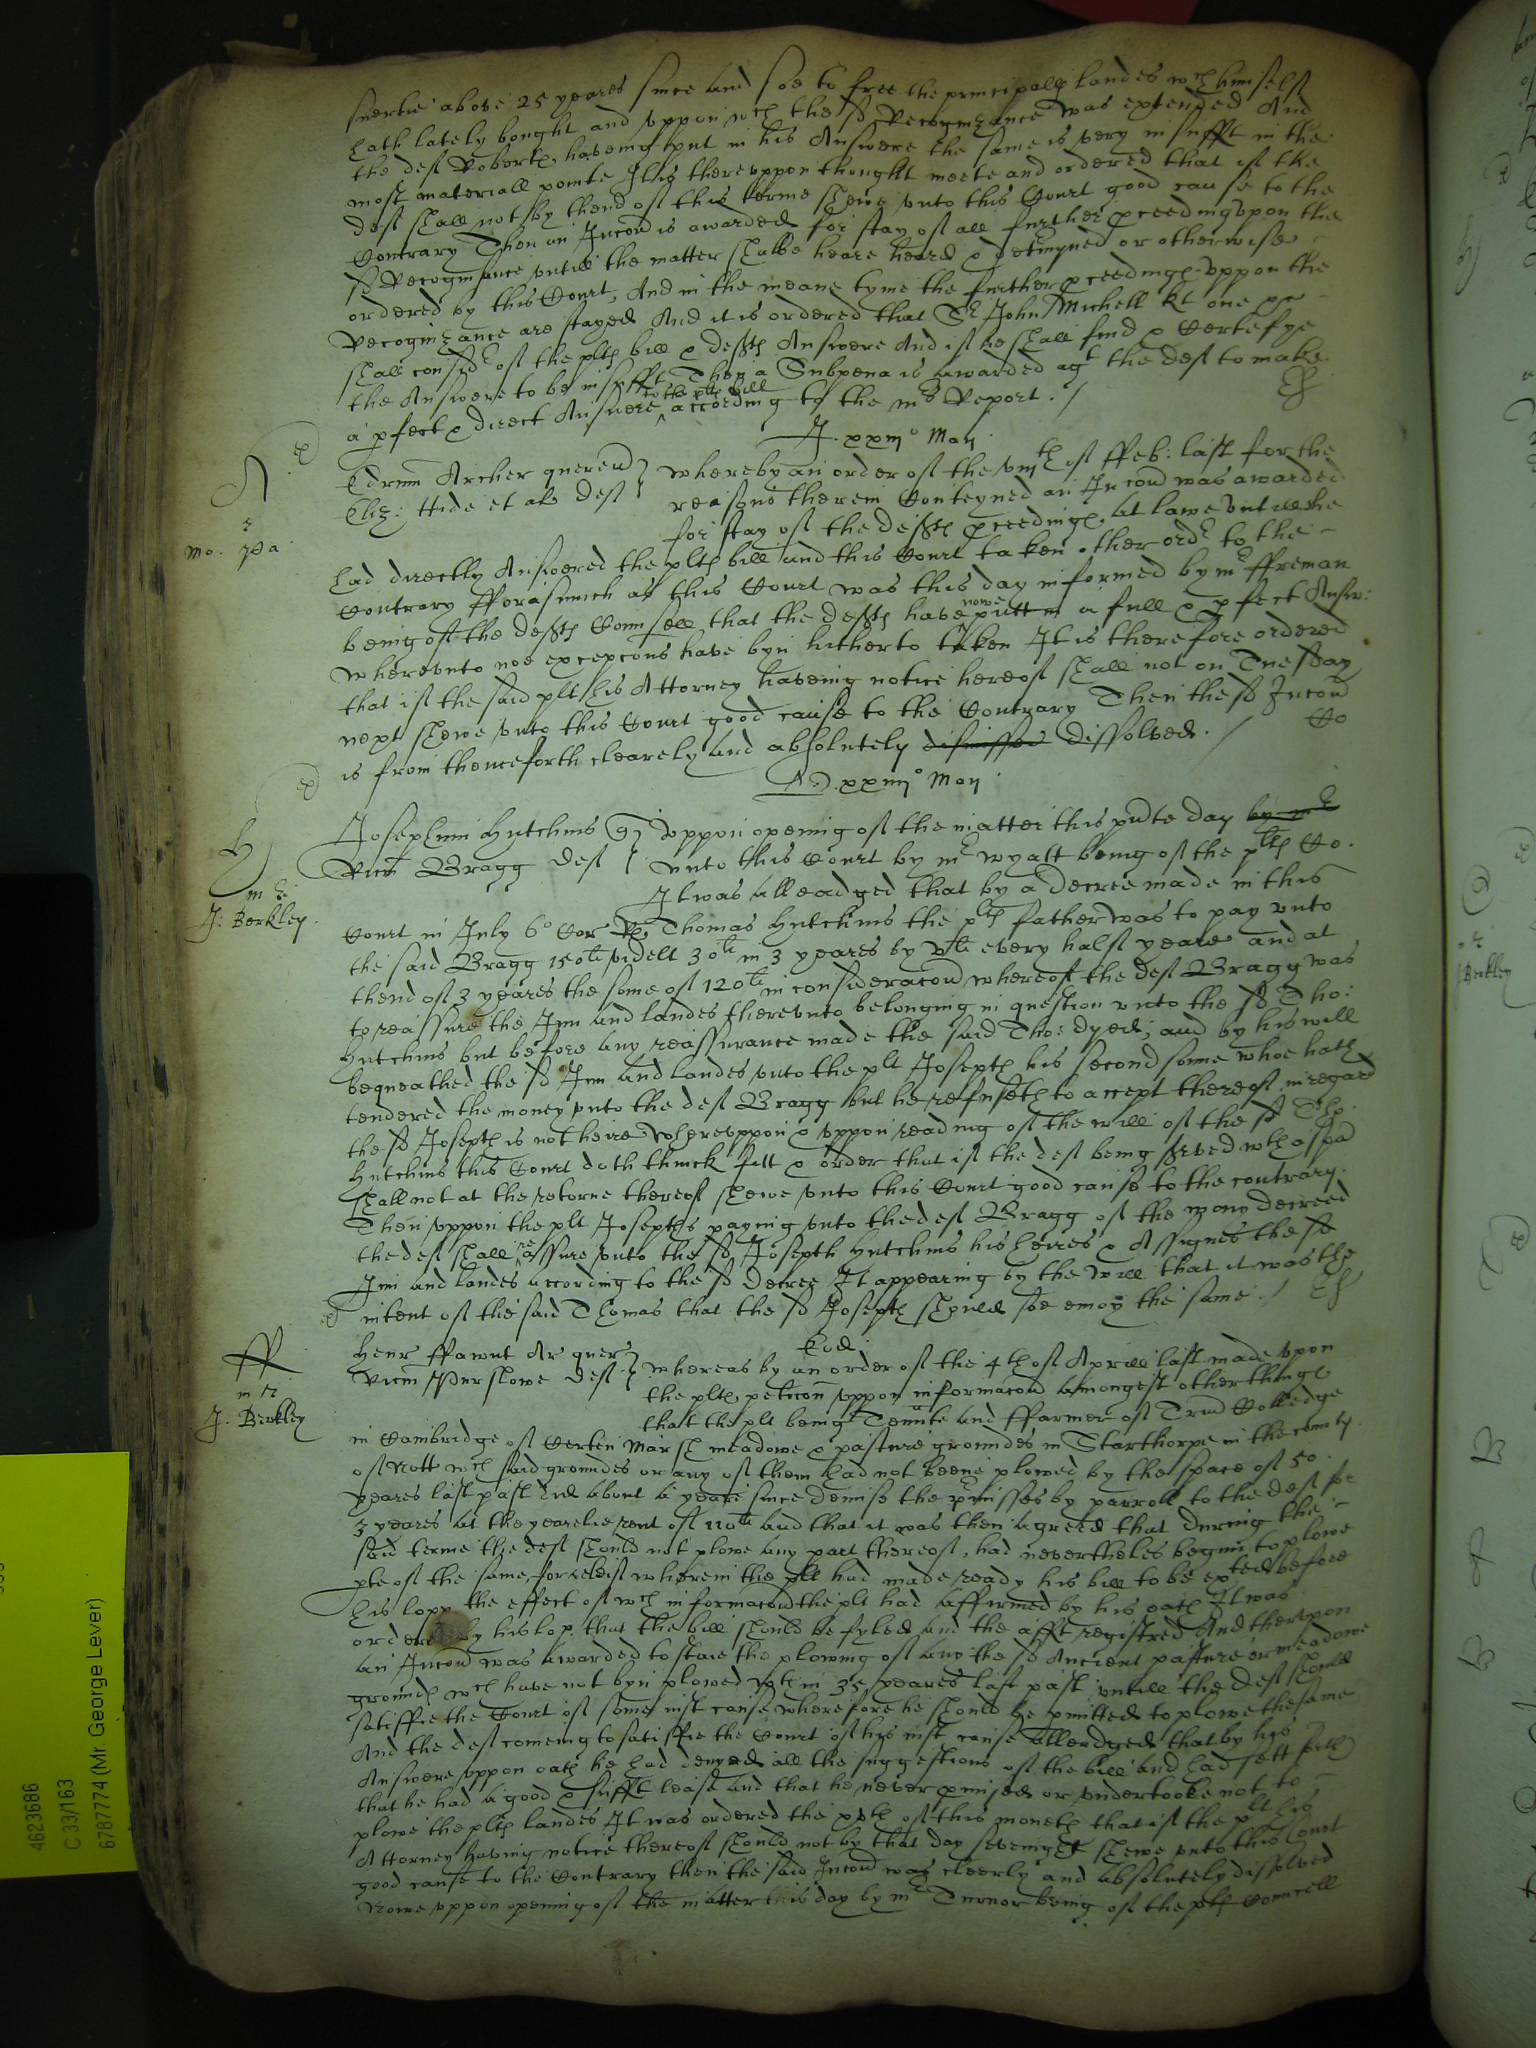 suertie above 25 yeares since and soe to free the principall landes wch himself
hath lately bought and uppon wch the sd Recognizance was extended And
the deft Roberte haveing put in his Answere the same is very insufft in the
most materiall pointe It is thereuppon thought meete and ordered that if the
deft shall not by thend of this terme shewe unto this Court good cause to the
contrary Then an Iuncon is awarded for stay of all further pceeding upon the
sd Recognisance untill the matter shalbe heare heard & detmyned or otherwise
ordered by this Court, And in the meane tyme the further pceedinge uppon the
Recognizance are stayed And it is ordered that Sr John Michell kt one &c
shall consider of the plts bill & defts Answere And if he shall find & Certefye
the Answere to be insufft Then a Subpena is awarded agt the deft to make
a pfect & direct Answere to the plts bill according to the mrs Report . /
A. xxiijo Maij
Edmun Archer queren
Eliz: Hide et al deft
whereby an order of the viijth of ffeb: last for the
reasons therein Conteyned an Iuncon was awarded
for stay of the defts pceedinge at lawe untill she
mo. Ra
had directly Answered the plts bill and this Court taken other ordr to the
contrary fforasmuch as this Court was this day informed by mr ffreman
being of the defts Counsell that the defts have nowe putt in a full & pfect Answ:
whereunto noe excepcons have byn hitherto taken It is therefore ordered
that if the said plt his Attorney haveing notice hereof shall not on Tuesday
next shewe unto this Court good cause to the Contrary Then the sd Iuncon
is from thenceforth clearely and absolutely dismissed dissolved. / Co
A D. xxiiijo Maij
Josephim Hutchins q
Willm Bragg deft
Uppon opening of the matter this pnte day by mr
unto this Court by mr Wyatt being of the plts Co.
It was alleadged that by a decree made in this
mr
J: Berkley.
Court in July 6o Car Re Thomas Hutchins the plts father was to pay unto
the said Bragg 150li videlt 30li in 3 yeares by vli every half yeare and at
thend of 3 yeares the some of 120li in consideracon whereof the deft Bragg was
to reassure the Inn and landes thereunto belonging in question unto the sd Tho:
Hutchins but before any reassurance made the said Tho: dyed; and by his will
bequeathed the sd Inn and landes unto the plt Joseph his second sonne whoe hath
tendered the money unto the deft Bragg but he refuseth to accept thereof in regard
the sd Joseph is not heire Whereuppon & uppon reading of the will of the sd Tho:
Hutchins this Court doth think fitt & order that if the deft being served wth a spa
shall not at the retorne thereof shewe unto this Court good cause to the contrary.
Then uppon the plt Josephs paying unto the deft Bragg of the mony decreed
the deft shall reassure unto the sd Joseph Hutchins his heires & Assignes the sd
Inn and landes according to the sd decree It appearing by the will that it was the
intent of the said Thomas that the sd Joseph should soe enioy the same . /
Eod.
Henr ffawnt Ar quer
Willm Purslowe deft
whereas by an order of the 4th of Aprill last made upon
the plts peticon uppon informacon amongest other thinge
that the plt being Tennte and ffarmer of Trin Colledge
mr
J. Berkley
in Cambridge of Certen Marsh meadowe & pasture groundes in Starthorpe in the county
of Nott wch said groundes or any of them had not beene plowed by the space of 50
yeares last past did about a yeare since demise the pmisses by parroll to the deft for
3 yeares at the yearelie rent of 110li and that it was then agreed that during the
said terme the deft should not plowe any part thereof, had nevertheles begun to plowe
pte of the same, for releif wherein the plt had made ready his bill to be exted before
his lopp the effect of wch informacon the plt had affirmed by his oath It was
ordered by his lop. that the bill should be fyled and the afft registred And thereupon
an Iuncon was awarded to staie the plowing of any the sd Ancient pasture or meadowe
ground wch have not byn plowed wthin 35 yeares last past untill the deft should
satisfie the Court of some iust cause wherefore he should be pmitted to plowe the same
And the deft comeing to satisfie the Court of his iust cause alleadged that by his
Answere uppon oath he had denyed all the suggestions of the bill and had sett forth
that he had a good & sufft lease and that he never pmised or undertooke not to
plowe the plts landes It was ordered the xvth of this moneth that if the plt his
Attorney having notice thereof should not by that day sevenight shewe unto this Court
good cause to the Contrary then the said Iuncon was cleerly and absolutely dissolved
Nowe uppon opening of the matter this day by mr Turnor being of the plts Councell
4623686
C 33/163
6787774 (Mr. George Lever)